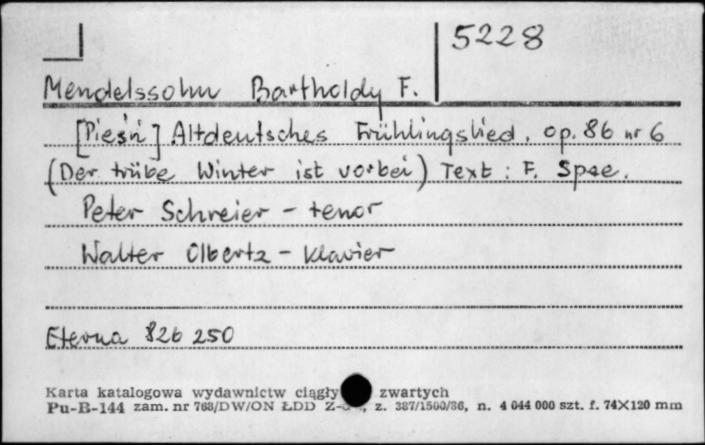 5228
Mendelssohn Bartholdy F.
[Pieśń] Altdeutsches Frühlingslied, op. 86 nr 6
(Der trübe Winter ist vorbei) Text: F. Spee.
Peter Schreier - tenor
Walter Olbertz - Klavier
Eterna 826 250
Karta katalogowa wydawnictw ciągły zwartych
Pu-B-144 zam. nr 768/DW/ON ŁDD z. 387/1500/86, n. 4 044 000 szt. f. 74×120 mm